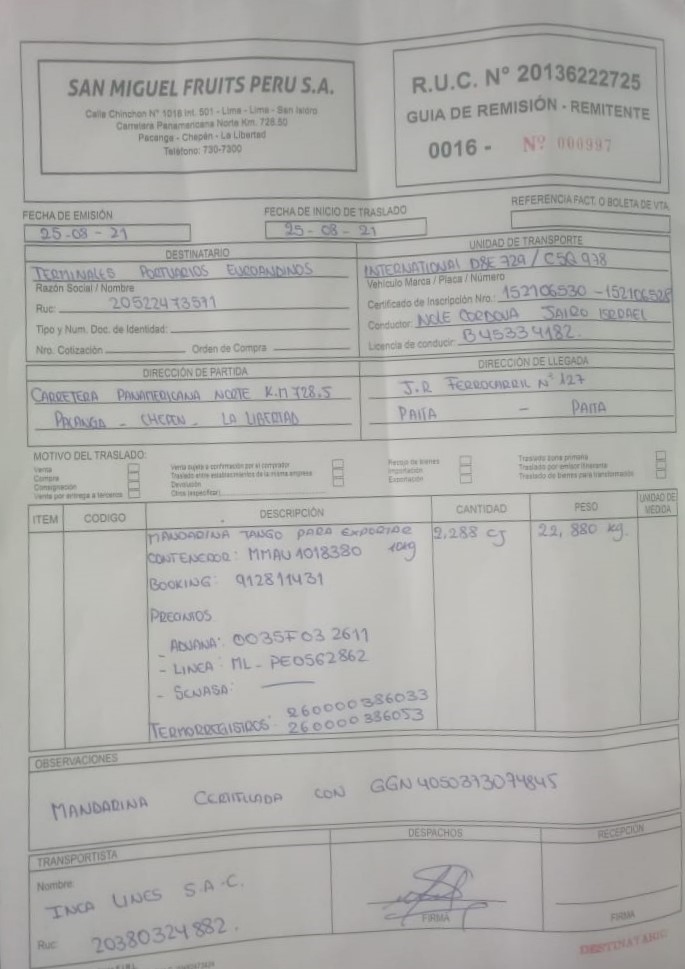 SAN MIGUEL FRUITS PERU S.A.
Calle Chinchon N° 1018 Int. 501 - Lima - Lima - San Isidro
Carretera Panamericana Norte Km. 728.50
Pacanga - Chepén - La Libertad
Teléfono: 730-7300
R.U.C. N° 20136222725
GUIA DE REMISIÓN - REMITENTE
0016 - Nº 000997
FECHA DE EMISIÓN
25-08-21
FECHA DE INICIO DE TRASLADO
25-08-21
REFERENCIA FACT. O BOLETA DE VTA.
DESTINATARIO
TERMINALES PORTUARIOS EUROANDINOS
Razón Social / Nombre
Ruc: 20522473571
Tipo y Num. Doc. de Identidad:
Nro. Cotización Orden de Compra
UNIDAD DE TRANSPORTE
INTERNATIONAL D8E 729 / C5Q 978
Vehículo Marca / Placa / Número
Certificado de Inscripción Nro.: 152106530 - 152106528
Conductor: NOLE CORDOVA JAIRO ISRRAEL
Licencia de conducir: B45334182.
DIRECCIÓN DE PARTIDA
CARRETERA PANAMERICANA NORTE K.M 728.5
PACANGA - CHEPEN - LA LIBERTAD
DIRECCIÓN DE LLEGADA
J.R FERROCARRIL N° 127
PAITA - PAITA
MOTIVO DEL TRASLADO:
Venta
Compra
Consignación
Venta por entrega a terceros
Venta sujeta a confirmación por el comprador
Traslado entre establecimientos de la misma empresa
Devolución
Otros (especificar)
Recojo de bienes
Importación
Exportación
Traslado zona primaria
Traslado por emisor itinerante
Traslado de bienes para transformación
ITEM CODIGO DESCRIPCIÓN CANTIDAD PESO UNIDAD DE MEDIDA
MANDARINA TANGO PARA EXPORTAR 2,288 CJ 22,880 kg.
CONTENEDOR: MMAU 1018380 10kg
BOOKING: 912811431
PRECINTOS
- ADUANA: 0035F03 2611
- LINEA: ML - PE0562862
- SENASA: ———
TERMORREGISTROS: 260000386033
260000386053
OBSERVACIONES
MANDARINA CERTIFICADA CON GGN 4050373074845
TRANSPORTISTA
Nombre: INCA LINES S.A.C.
Ruc: 20380324882.
DESPACHOS
FIRMA
RECEPCIÓN
FIRMA
DESTINATARIO